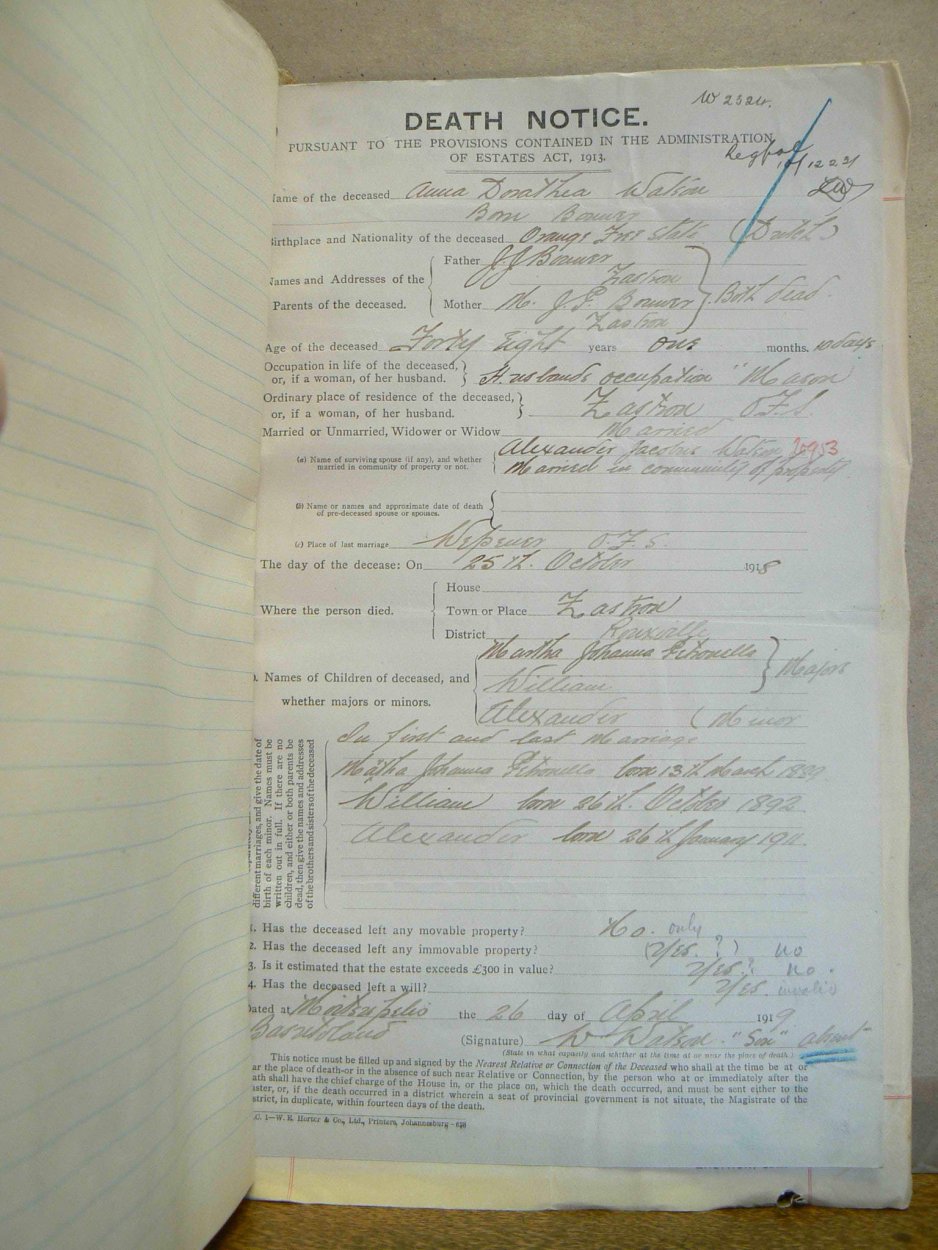 W 2324.
DEATH NOTICE.
PURSUANT TO THE PROVISIONS CONTAINED IN THE ADMINISTRATION
OF ESTATES ACT, 1913.
ame of the deceased Anna Dorathea Watson
Born Bouwer
Birthplace and Nationality of the deceased Orange Free State (Dutch)
Names and Addresses of the Parents of the deceased.
Father J J Bouwer
Zastron
Mother M. J. E. Bouwer
Zastron
Both dead.
Age of the deceased Forty Eight years one months. 10 days
Occupation in life of the deceased,
or, if a woman, of her husband. Husbands occupation "Mason
Ordinary place of residence of the deceased,
or, if a woman, of her husband. Zastron O.F.S
Married or Unmarried, Widower or Widow Married
(a) Name of surviving spouse (if any), and whether
married in community of property or not.
Alexander Jacobus Watson
Married in community of property
(b) Name or names and approximate date of death
of pre-deceased spouse or spouses.
(c) Place of last marriage Wepener O.F.S.
The day of the decease: On 25th. October 1918
Where the person died.
House
Town or Place Zastron
District Rouxville
Names of Children of deceased, and
whether majors or minors.
Martha Johanna Petronella
William
Majors
Alexander (Minor
In first and last Marriage
Matha Johanna Petronella born 13th March 1889
William born 26th. October 1892
Alexander born 26th January 1911.
different marriages, and give the date of
birth of each minor. Names must be
written out in full. If there are no
children, and either or both parents be
dead, then give the names and addresses
of the brothers and sisters of the deceased
1. Has the deceased left any movable property? No. only
2. Has the deceased left any immovable property? (Yes ?) no
3. Is it estimated that the estate exceeds £300 in value? Yes? no.
4. Has the deceased left a will? Yes. invalid
Dated at the 26 day of April 1919
Basutoland
(Signature) W Watson. "Son" absent
(State in what capacity and whether at the time at or near the place of death.)
This notice must be filled up and signed by the Nearest Relative or Connection of the Deceased who shall at the time be at or
ar the place of death-or in the absence of such near Relative or Connection, by the person who at or immediately after the
ath shall have the chief charge of the House in, or the place on, which the death occurred, and must be sent either to the
ster, or, if the death occurred in a district wherein a seat of provincial government is not situate, the Magistrate of the
strict, in duplicate, within fourteen days of the death.
C. 1—W. E. Horter & Co., Ltd., Printers, Johannesburg